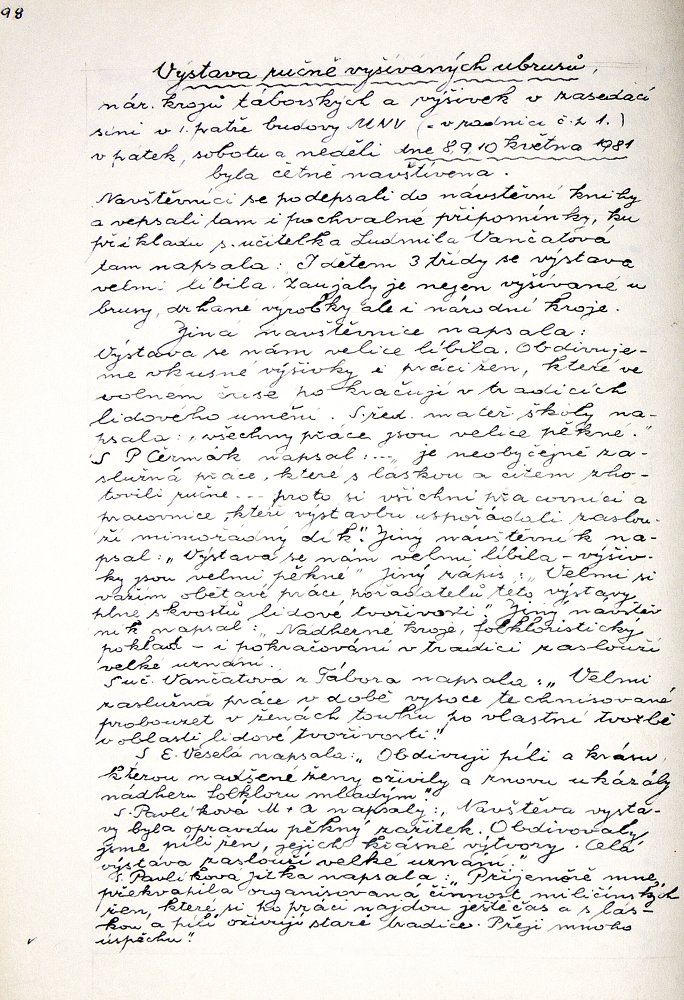 98
Výstava ručně vyšívaných ubrusů,
nár. krojů táborských a výšivek v zasedací
síni v 1. patře budovy MNV (= v radnici č.p 1.)
v pátek, sobotu a neděli dne 8,9,10 května 1981
byla četně navštívena.
Navštěvníci se podepsali do návštěvní knihy
a vepsali tam i pochvalné připomínky, ku
příkladu s. učitelka Ludmila Vančatová
tam napsala: I dětem 3 třídy se výstava
velmi líbila. Zaujaly je nejen vyšívané u
brusy, drhané výrobky ale i národní kroje.
Jiná navštěvnice napsala:
Výstava se nám velice líbila. Obdivuje-
me vkusné výšivky i práci žen, které ve
volném čase po kračují v tradicích
lidového umění. S. řed. mateř. školy na-
psala: „všechny práce jsou velice pěkné."
S P Čermák napsal:... „ je neobyčejně zá-
služná práce, které s láskou a citem zho-
tovili ručně... proto si všichni pracovníci a
pracovnice, kteří výstavbu uspořádali zaslou-
ží mimořádný dík". Jiný návštěvník na-
psal: „Výstava se nám velmi líbila – výšiv-
ky jsou velmi pěkné" Jiný zápis: „Velmi si
vážím obětavé práce pořadatelů této výstavy
plné skvostů lidové tvořivosti" Jiný návštěv
ník napsal: „Nádherné kroje, folkloristický
poklad – i pokračování v tradici zaslouží
velké uznání.
S uč. Vančatová z Tábora napsala: „Velmi
záslužná práce v době vysoce technisované
probouzet v ženách touhu po vlastní tvorbě
v oblasti lidové tvořivosti."
S E. Veselá napsala: „Obdivuji píli a krásu,
kterou nadšené ženy oživily a znovu ukázaly
nádheru folkloru mladým"
S. Pavlíková M + A napsaly: „Navštěva výsta-
vy byla opravdu pěkný zážitek. Obdivovaly
jsme píli žen, jejich krásné výtvory. Celá
výstava zaslouží velké uznání."
S. Pavlíková Jitka napsala: „Příjemně mne
překvapila organisovaná činnost miličínských
žen, které si po práci najdou ještě čas a s lás-
kou a pílí oživují staré tradice. Přeji mnoho
úspěchu"